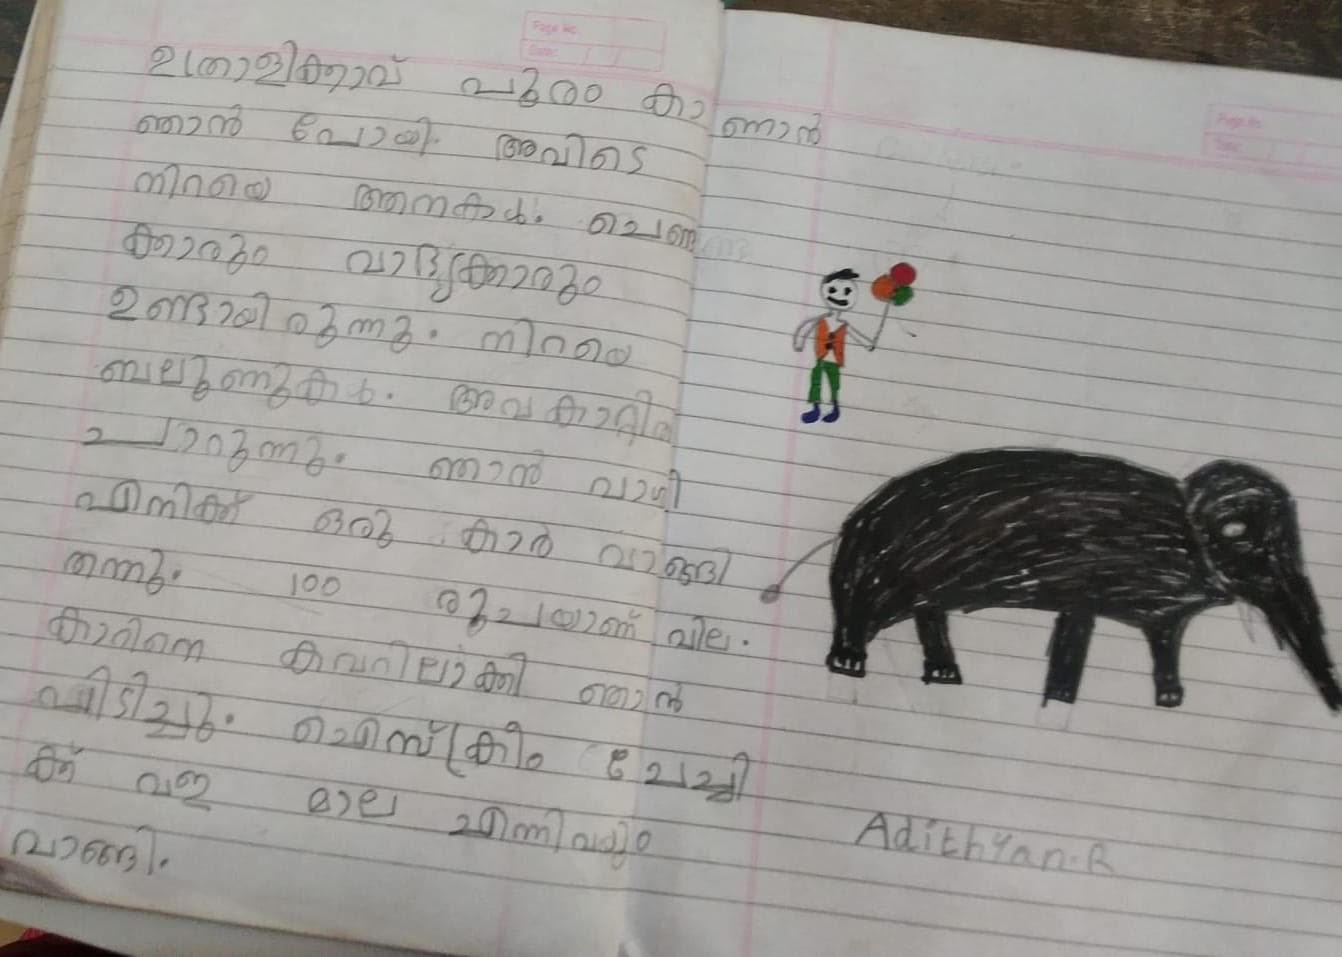 ഉത്രാളിക്കാവ് പൂരം കാ
ണാൻ
ഞാൻ പോയി. അവിടെ
നിറയെ ആനകൾ. ചെണ്ട
ക്കാരും വാദ്യക്കാരും
ഉണ്ടായിരുന്നു. നിറയെ
ബലൂണുകൾ. അവ കാറ്റിൽ
പാറുന്നു. ഞാൻ വാശി
പിടിച്ചു.
എനിക്ക് ഒരു കാർ വാങ്ങി
തന്നു. 100 രൂപയാണ് വില.
കാറിനെ കവറിലാക്കി ഞാൻ
പിടിച്ചു. ഐസ്ക്രീം ചേച്ചി
ക്ക് വള മാല എന്നിവയും
വാങ്ങി.
Page No:
Date:
Page No:
Date:
Adithyan.R